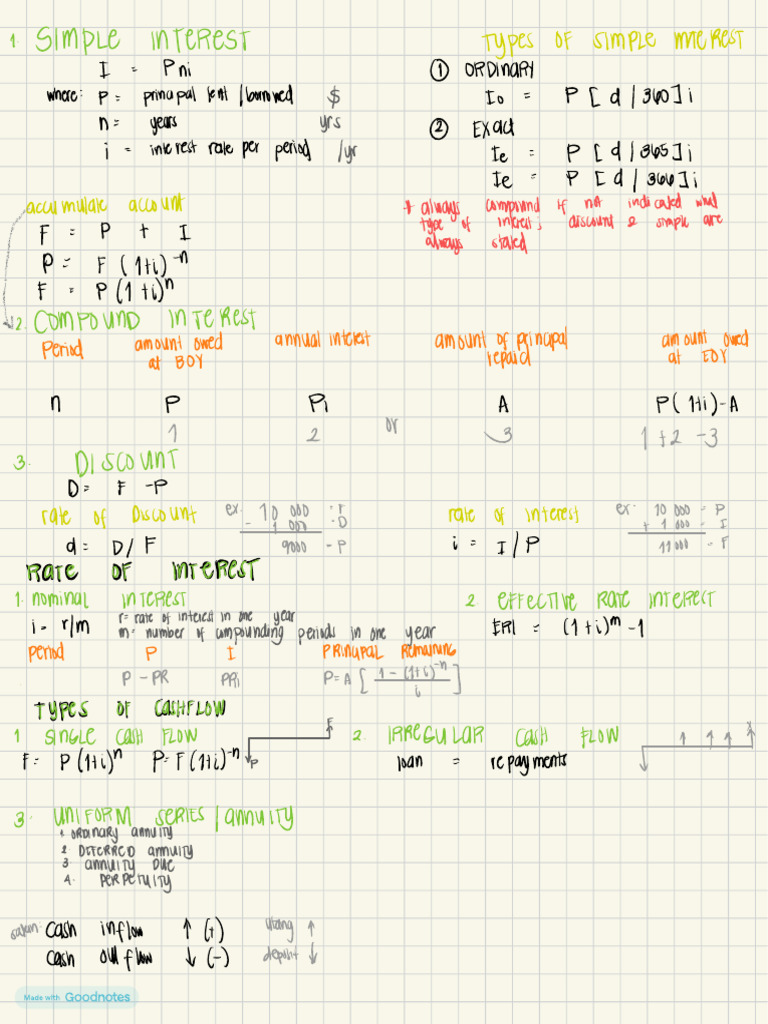 1. SIMPLE INTEREST
I = Pni
where: P = principal lent / borrowed $
n = years yrs
i = interest rate per period /yr
TYPES OF SIMPLE INTEREST
① ORDINARY
Io = P [ d / 360 ] i
② EXACT
Ie = P [ d / 365 ] i
Ie = P [ d / 366 ] i
* always compound if not indicated what
type of interest; discount & simple are
always stated
accumulate account
F = P + I
P = F (1+i)⁻ⁿ
F = P (1+i)ⁿ
2. COMPOUND INTEREST
Period amount owed at BOY annual interest amount of principal repaid amount owed at EOY
n P Pi A P(1+i)-A
1 2 or 3 1+2-3
3. DISCOUNT
D = F - P
rate of Discount ex: 10 000 : F
- 1 000 : D
9000 - P
d = D/F
rate of interest ex: 10 000 = P
+ 1 000 = I
11 000 - F
i = I/P
RATE OF INTEREST
1. nominal INTEREST
i = r/m r = rate of interest in one year
m = number of compounding periods in one year
2. EFFECTIVE RATE INTEREST
ERI = (1+i)ᵐ-1
Period P I PRINCIPAL REMAINING
P - PR PRi P = A [ 1 - (1+i)⁻ⁿ / i ]
TYPES OF CASHFLOW
1 SINGLE CASH FLOW
F = P(1+i)ⁿ P = F(1+i)⁻ⁿ
F
P
2. IRREGULAR CASH FLOW
loan = repayments
3. UNIFORM SERIES / ANNUITY
1 ORDINARY ANNUITY
2 DEFERRED ANNUITY
3 ANNUITY DUE
4. PERPETUITY
cash inflow ↑ (+) utang ↑
cash outflow ↓ (-) deposit ↓
Made with Goodnotes